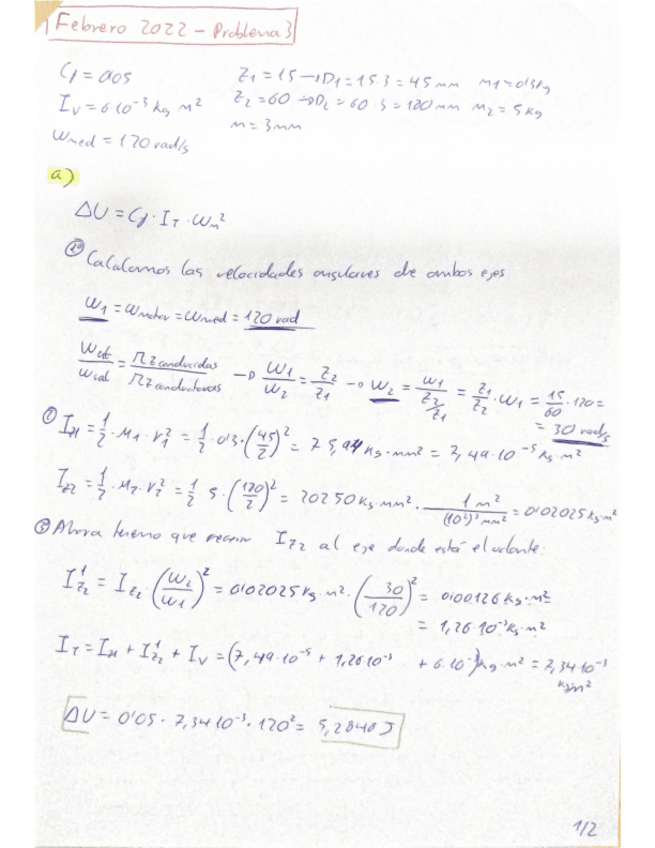 Febrero 2022 - Problema 3
Cf = 0'05
Z1 = 15 → D1 = 15·3 = 45 mm m1 = 0'3 kg
Iv = 6·10⁻³ kg m²
Z2 = 60 → D2 = 60·3 = 180 mm m2 = 5 kg
m = 3mm
ωmed = 120 rad/s
a)
ΔU = Cf · IT · ωm²
① Calculamos las velocidades angulares de ambos ejes
ω1 = ωmotor = ωmed = 120 rad
ωent/ωsal = Π Z conducidas / Π Z conductoras → ω1/ω2 = Z2/Z1 → ω2 = ω1/(Z2/Z1) = Z1/Z2 · ω1 = 15/60 · 120 =
= 30 rad/s
② IZ1 = 1/2 · M1 · r1² = 1/2 · 0'3 · (45/2)² = 75,94 kg·mm² = 7,49·10⁻⁵ kg·m²
IZ2 = 1/2 · M2 · r2² = 1/2 · 5 · (180/2)² = 20250 kg·mm² · 1 m² / (10³)² mm² = 0'02025 kg·m²
③ Ahora tenemo que IZ2 al eje donde está el volante:
IZ2¹ = IZ2 · (ω2/ω1)² = 0'02025 kg·m² · (30/120)² = 0'00126 kg·m²
= 1,26·10⁻³ kg·m²
IT = IZ1 + IZ2¹ + Iv = (7,49·10⁻⁵ + 1,26·10⁻³ + 6·10⁻³) kg·m² = 7,34·10⁻³
kg·m²
ΔU = 0'05 · 7,34·10⁻³ · 120² = 5,2848 J
1/2